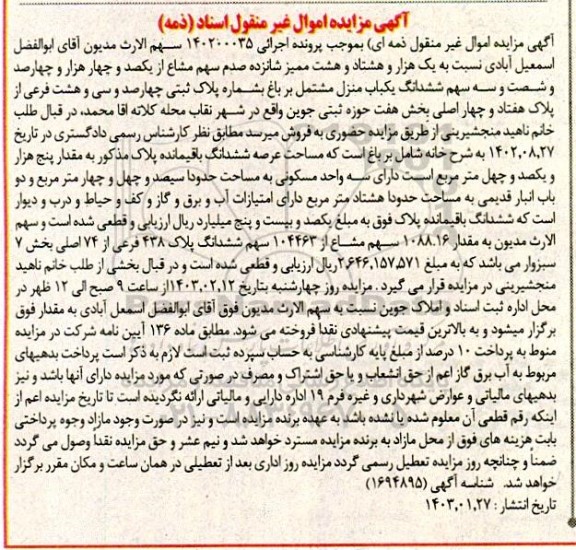 آگهی مزایده اموال غیر منقول اسناد (ذمه)
آگهی مزایده اموال غیر منقول ذمه ای) بموجب پرونده اجرائی ۱۴۰۲۰۰۰۳۵ سهم الارث مدیون آقای ابوالفضل
اسمعیل آبادی نسبت به یک هزار و هشتاد و هشت ممیز شانزده صدم سهم مشاع از یکصد و چهار هزار و چهارصد
و شصت و سه سهم ششدانگ یکباب منزل مشتمل بر باغ بشماره پلاک ثبتی چهارصد و سی و هشت فرعی از
پلاک هفتاد و چهار اصلی بخش هفت حوزه ثبتی جوین واقع در شهر نقاب محله کلاته اقا محمد، در قبال طلب
خانم ناهید منجشیرینی از طریق مزایده حضوری به فروش میرسد مطابق نظر کارشناس رسمی دادگستری در تاریخ
۱۴۰۲,۰۸,۲۷ به شرح خانه شامل بر باغ است که مساحت عرصه ششدانگ باقیمانده پلاک مذکور به مقدار پنج هزار
و یکصد و چهل متر مربع است دارای سه واحد مسکونی به مساحت حدودا سیصد و چهل و چهار متر مربع و دو
باب انبار قدیمی به مساحت حدودا هشتاد متر مربع دارای امتیازات آب و برق و گاز و کف و حیاط و درب و دیوار
است که ششدانگ باقیمانده پلاک فوق به مبلغ یکصد و بیست و پنج میلیارد ریال ارزیابی و قطعی شده است و سهم
الارث مدیون به مقدار ۱۰۸۸.۱۶ سهم مشاع از ۱۰۴۴۶۳ سهم ششدانگ پلاک ۴۳۸ فرعی از ۷۴ اصلی بخش ۷
سبزوار می باشد که به مبلغ ۲,۶۴۶,۱۵۷,۵۷۱ ریال ارزیابی و قطعی شده است و در قبال بخشی از طلب خانم ناهید
منجشیرینی در مزایده قرار می گیرد . مزایده روز چهارشنبه بتاریخ ۱۴۰۳,۰۲,۱۲ از ساعت ۹ صبح الی ۱۲ ظهر در
محل اداره ثبت اسناد و املاک جوین نسبت به سهم الارث مدیون فوق آقای ابوالفضل اسمعل آبادی به مقدار فوق
برگزار میشود و به بالاترین قیمت پیشنهادی نقداً فروخته می شود. مطابق ماده ۱۳۶ آیین نامه شرکت در مزایده
منوط به پرداخت ۱۰ درصد از مبلغ پایه کارشناسی به حساب سپرده ثبت است لازم به ذکر است پرداخت بدهیهای
مربوط به آب برق گاز اعم از حق انشعاب و یا حق اشتراک و مصرف در صورتی که مورد مزایده دارای آنها باشد و نیز
بدهیهای مالیاتی و عوارض شهرداری و غیره فرم ۱۹ اداره دارایی و مالیاتی ارائه نگردیده است تا تاریخ مزایده اعم از
اینکه رقم قطعی آن معلوم شده یا نشده باشد به عهده برنده مزایده است و نیز در صورت وجود مازاد وجوه پرداختی
بابت هزینه های فوق از محل مازاد به برنده مزایده مسترد خواهد شد و نیم عشر و حق مزایده نقداً وصول می گردد
ضمناً و چنانچه روز مزایده تعطیل رسمی گردد مزایده روز اداری بعد از تعطیلی در همان ساعت و مکان مقرر برگزار
خواهد شد. شناسه آگهی (۱۶۹۴۸۹۵)
تاریخ انتشار : ۱۴۰۳,۰۱,۲۷